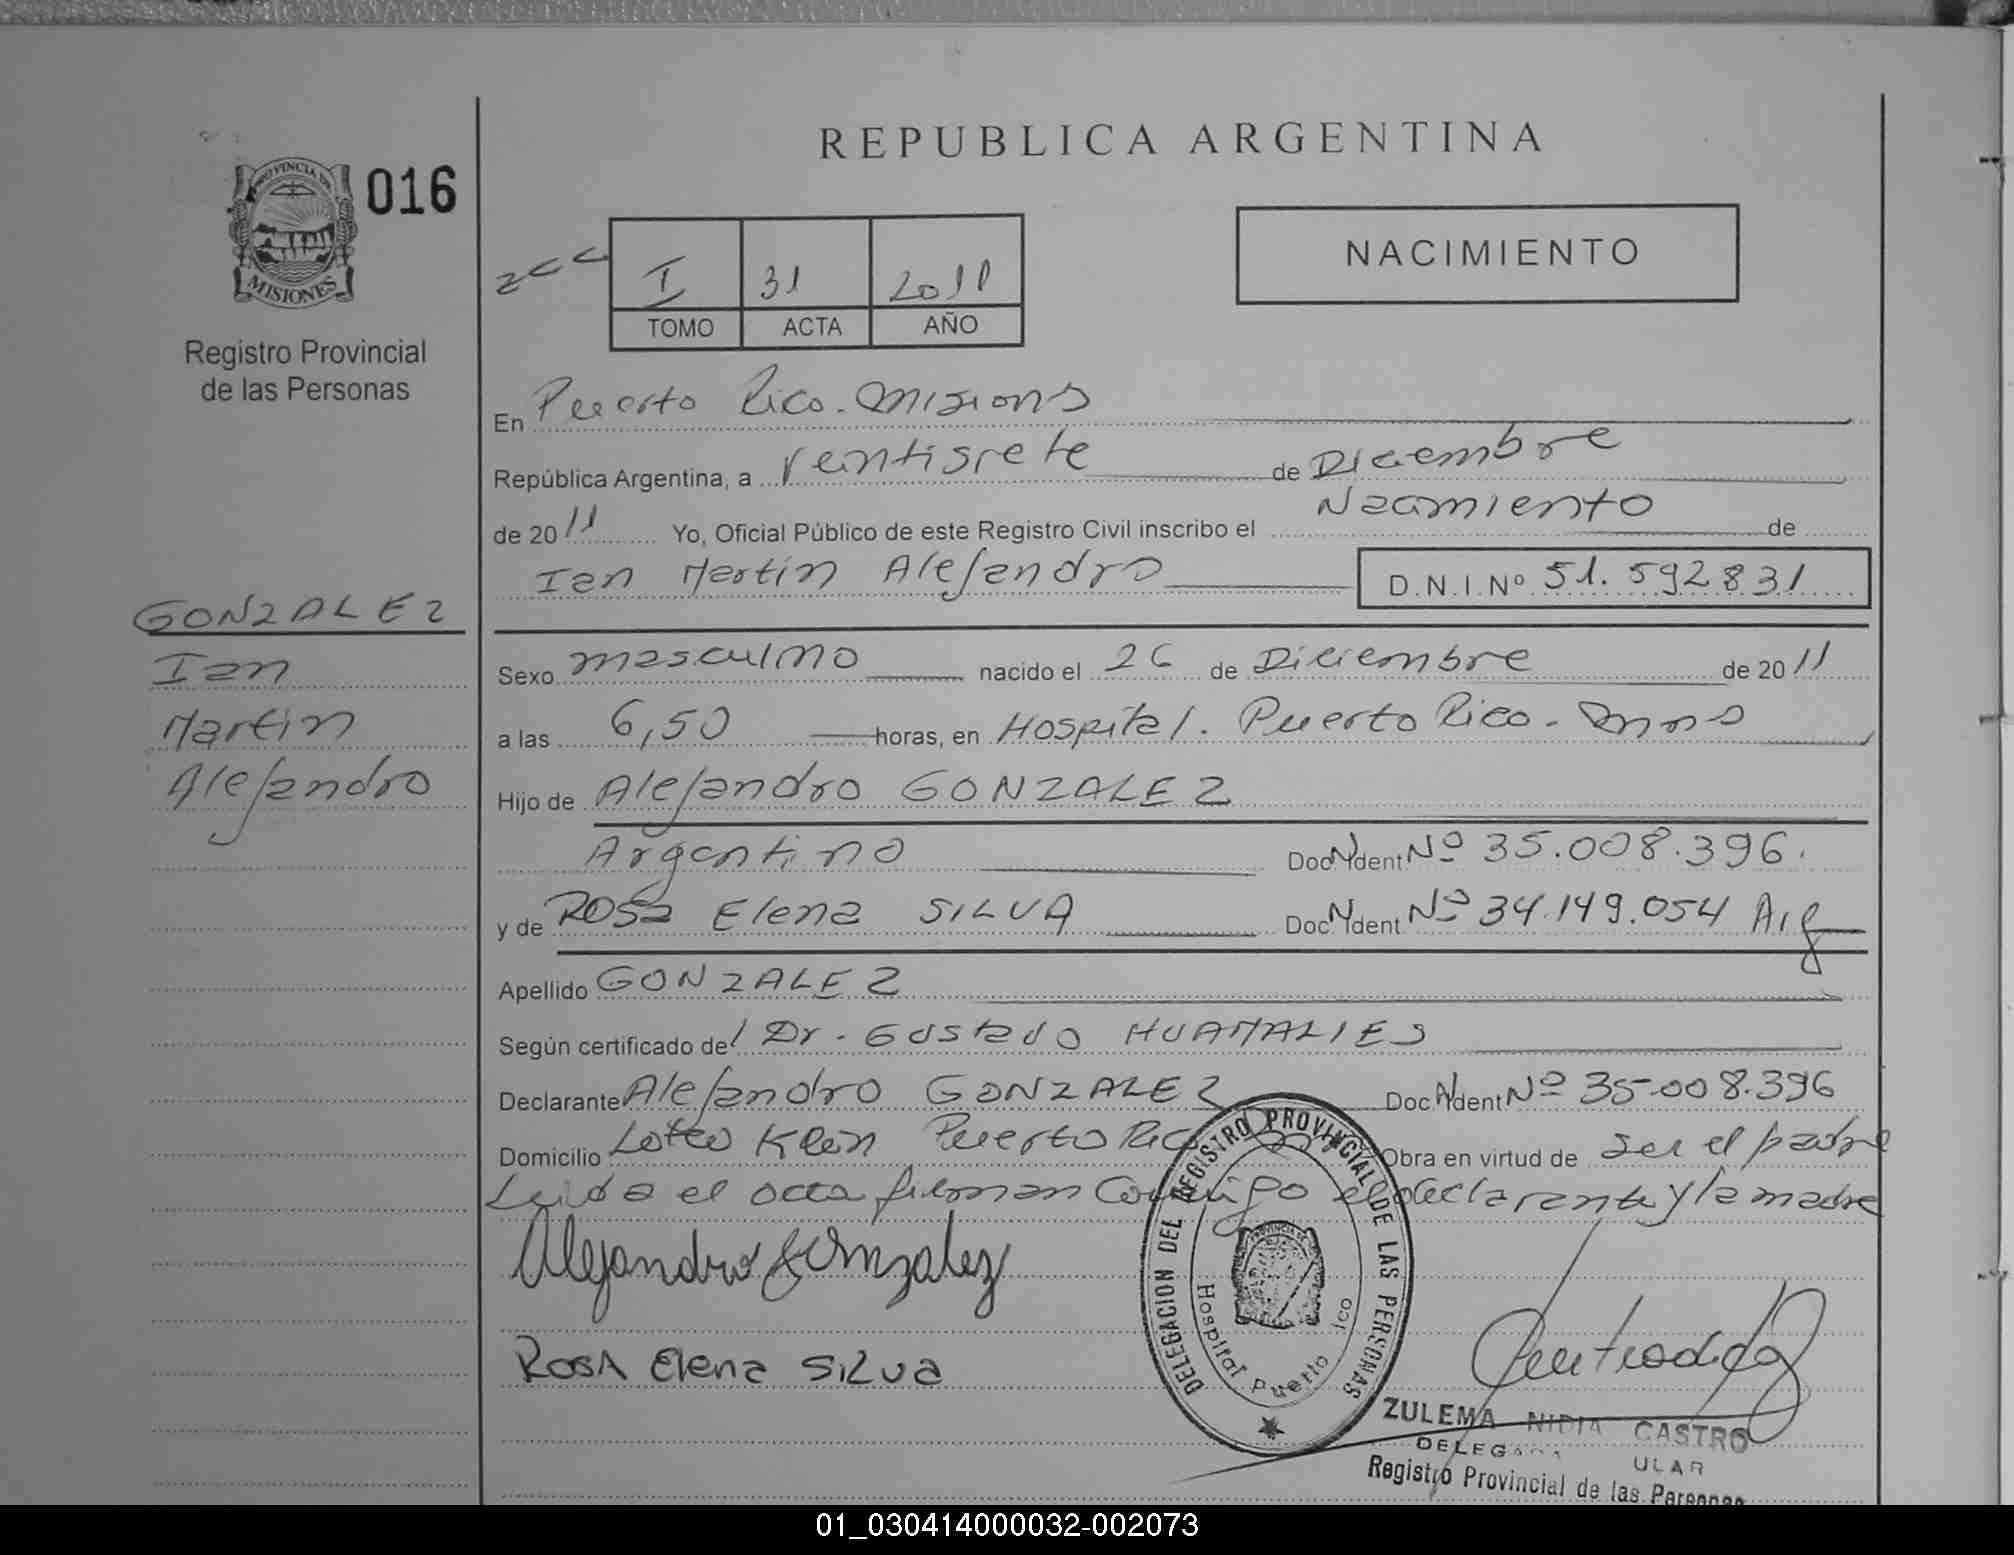 REPUBLICA ARGENTINA
PROVINCIA DE
MISIONES
016
Registro Provincial
de las Personas
I 31 2011
TOMO ACTA AÑO
NACIMIENTO
En Puerto Rico. Misions
República Argentina, a Veintisiete de Diciembre
de 2011 Yo, Oficial Público de este Registro Civil inscribo el Nacimiento de
Ian Martín Alejandro D.N.I.Nº 51.592831
GONZALEZ
Ian
Martín
Alejandro
Sexo masculino nacido el 26 de Diciembre de 2011
a las 6,50 horas, en Hospital. Puerto Rico. Mnes
Hijo de Alejandro GONZALEZ
Argentino Doc N Ident Nº 35.008.396.
y de ROSA Elena SILVA Doc N Ident Nº 34.149.054 Arg
Apellido GONZALEZ
Según certificado del Dr. Gustavo HUAMALIES
Declarante Alejandro GONZALEZ Doc N Ident Nº 35.008.396
Domicilio Loteo Klein Puerto Rico Obra en virtud de ser el padre
Leida el acta firman Conmigo el declarante y la madre
Alejandro Gonzalez
Rosa Elena Silva
DELEGACION DEL REGISTRO PROVINCIAL DE LAS PERSONAS
Hospital Puerto ico
ZULEMA NIDIA CASTRO
DELEGADA ULAR
Registro Provincial de las Personas
01_030414000032-002073